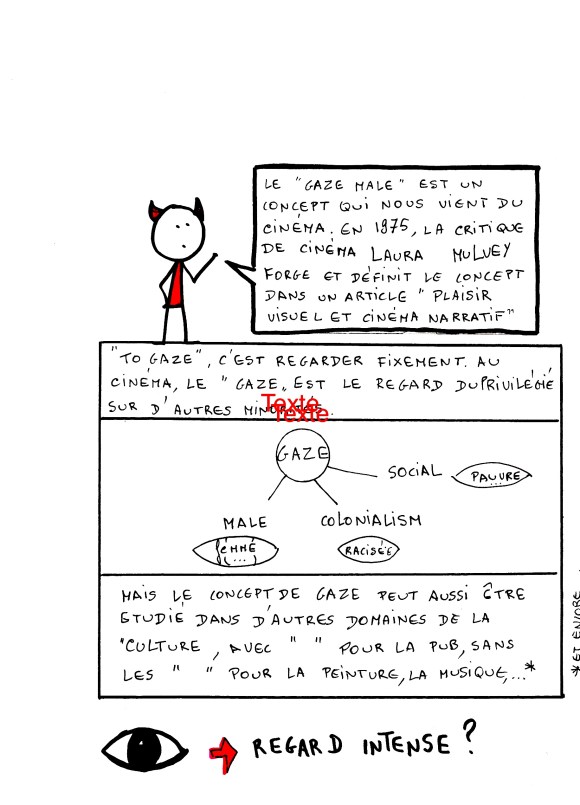 LE "GAZE MALE" EST UN
CONCEPT QUI NOUS VIENT DU
CINÉMA. EN 1975, LA CRITIQUE
DE CINÉMA LAURA MULVEY
FORGE ET DÉFINIT LE CONCEPT
DANS UN ARTICLE "PLAISIR
VISUEL ET CINÉMA NARRATIF"
"TO GAZE", C'EST REGARDER FIXEMENT. AU
CINÉMA, LE "GAZE" EST LE REGARD DU PRIVILÉGIÉ
SUR D'AUTRES
Texte
Texte
GAZE
SOCIAL
PAUVRE
MALE
COLONIALISM
(...)
RACISÉ·E
MAIS LE CONCEPT DE GAZE PEUT AUSSI ÊTRE
ETUDIÉ DANS D'AUTRES DOMAINES DE LA
"CULTURE, AVEC " " POUR LA PUB, SANS
LES " " POUR LA PEINTURE, LA MUSIQUE,...*
*ET ENCORE
REGARD INTENSE ?